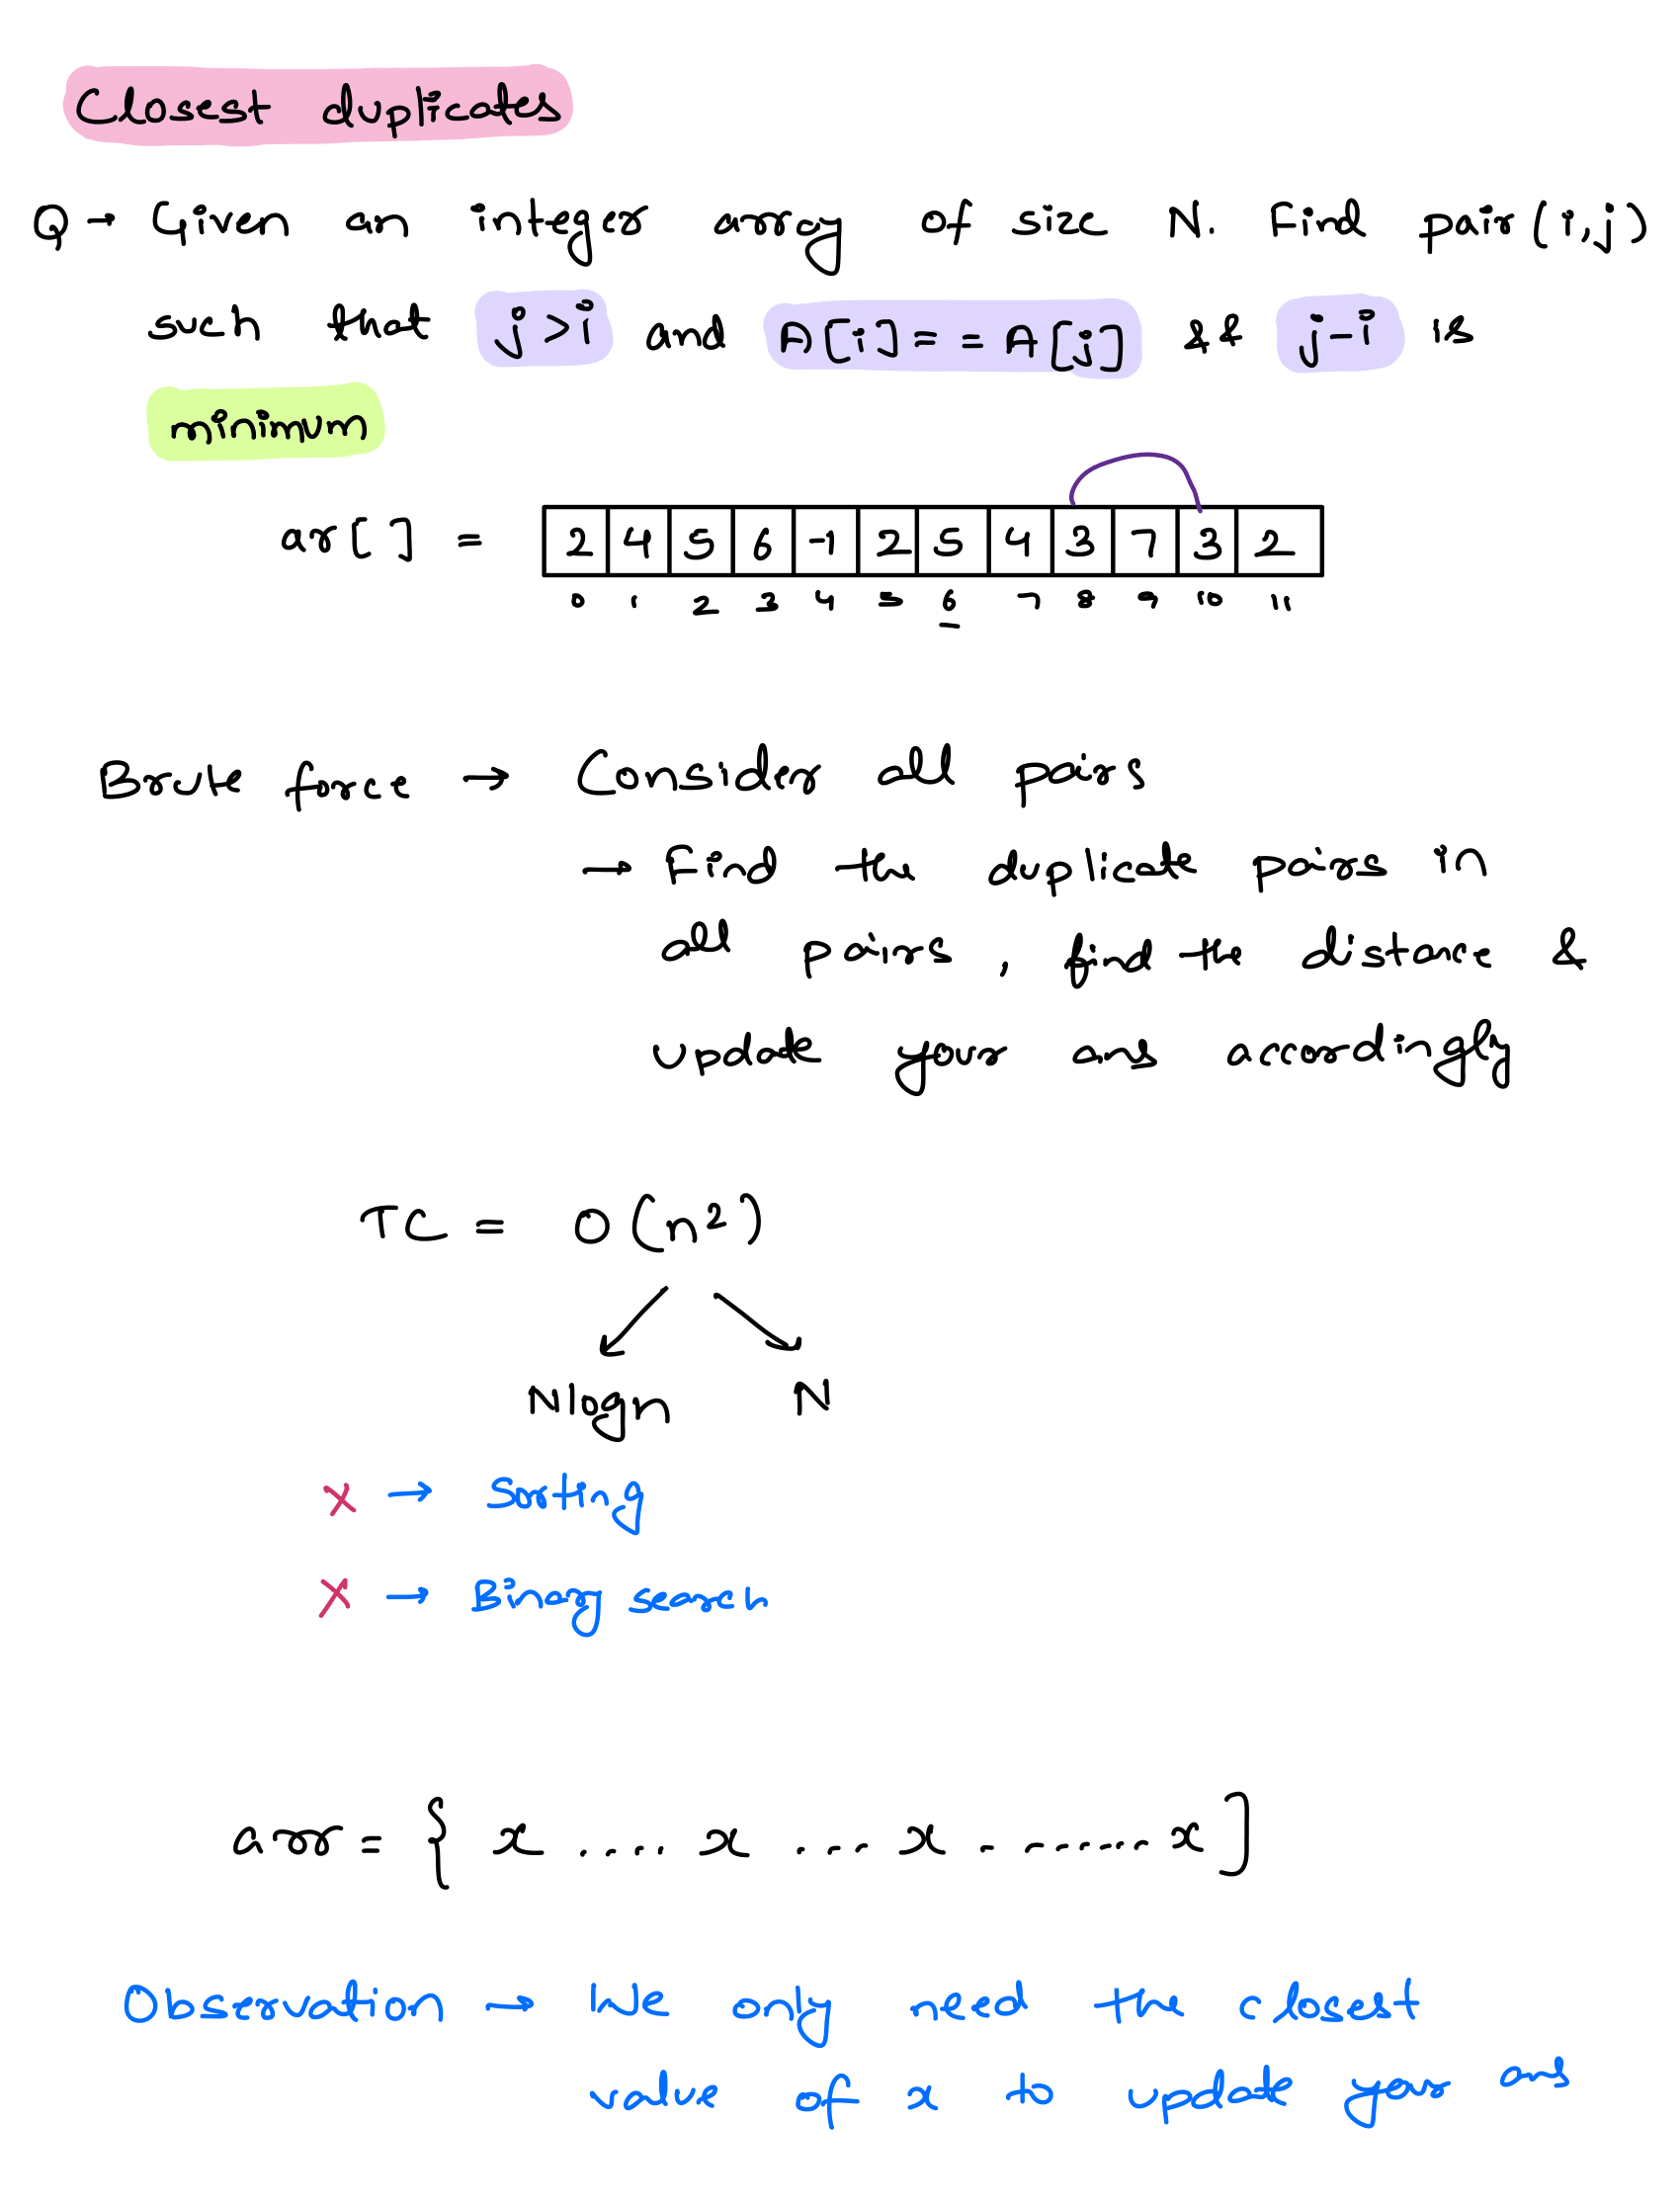 Closest duplicates
Q → Given an integer array of size N. Find pair(i,j)
such that j>i and A[i]==A[j] && j-i is
minimum
ar[] = 2 4 5 6 -1 2 5 4 3 7 3 2
0 1 2 3 4 5 6 7 8 9 10 11
Brute force → Consider all pairs
→ Find the duplicate pairs in
all pairs, find the distance &
update your ans accordingly
TC = O(n²)
Nlogn N
x → Sorting
x → Binary search
arr = { x .... x ... x . ....... x ]
Observation → We only need the closest
value of x to update your ans